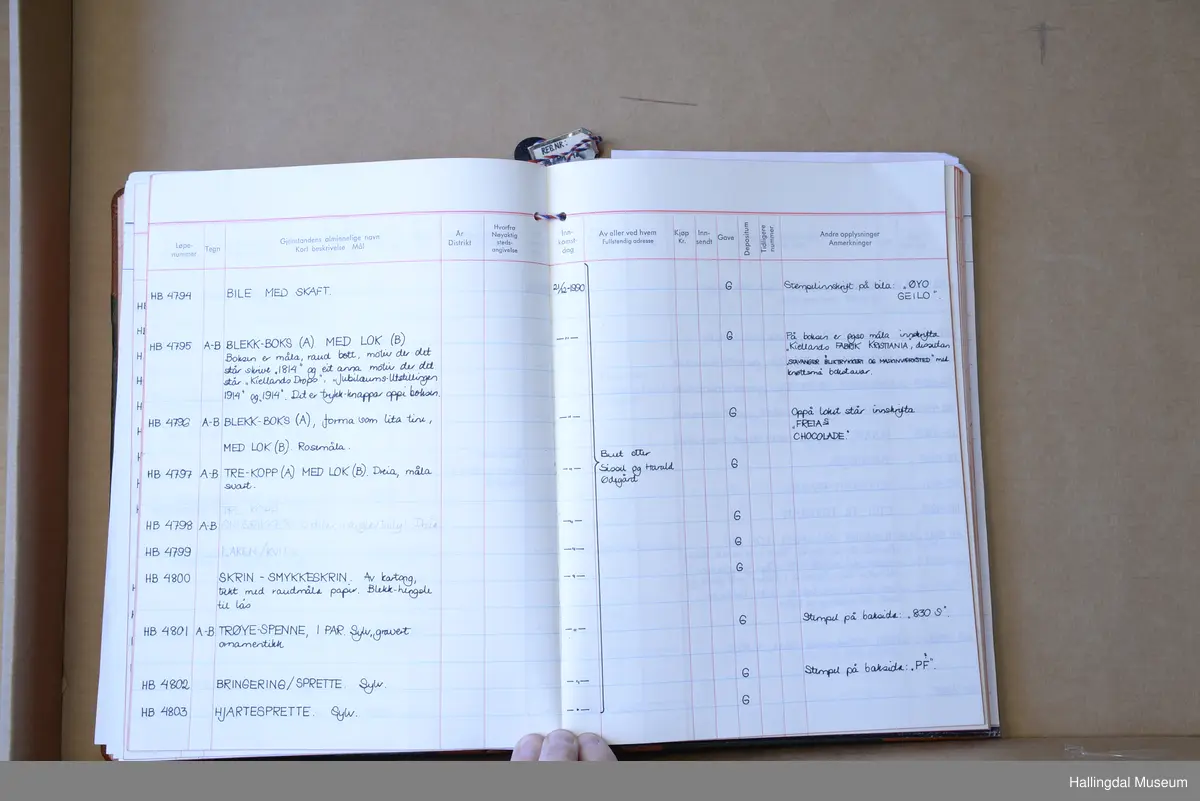 REG.NR:
Løpe-
nummer
Tegn
Gjenstandens alminnelige navn
Kort beskrivelse Mål
År
Distrikt
Hvorfra
Nøyaktig
steds-
angivelse
Inn-
komst-
dag
Av eller ved hvem
Fullstendig adresse
Kjøp
Kr.
Inn-
sendt
Gave
Depositum
Tidligere
nummer
Andre opplysninger
Anmerkninger
HB 4794 BILE MED SKAFT. -1990 G Stempelinnskrift på bila: „ØYO
GEILO".
HB 4795 A-B BLEKK-BOKS (A) MED LOK (B) —"— G På boksen er også måla innskrifta
Boksen er måla, raud bott, motiv der det „Kiellands FABRIK KRISTIANIA,
står skrive „1814" og eit anna motiv der det „STAVANGER BLIKTRYKKERI OG MASKINVERKSTED" med
står „Kiellands Drops", „Jubilæums-Utstillingen bokstavar.
1914" og „1914". Det er trykk-knappar oppi boksen.
HB 4796 A-B BLEKK-BOKS (A), forma som lita tine, —"— G Oppå loket står innskrifta
„FREIAS
MED LOK (B). Rosemåla. CHOCOLADE"
Buet etter
HB 4797 A-B TRE-KOPP (A) MED LOK (B). Dreia, måla —"— Sissel og Harald G
svart. Ødegård
HB 4798 A-B —"— G
HB 4799 LAKEN —"— G
HB 4800 SKRIN - SMYKKESKRIN. Av kartong, —"— G
tekt med raudmåla papir. Blekk-hengsle
til lås
HB 4801 A-B TRØYE-SPENNE, 1 PAR. Sylv, gravert —"— G Stempel på bakside: „830 S".
ornamentikk
HB 4802 BRINGERING/SPRETTE. Sylv. —"— G Stempel på bakside: „PF".
HB 4803 HJARTESPRETTE. Sylv. —"— G
Hallingdal Museum